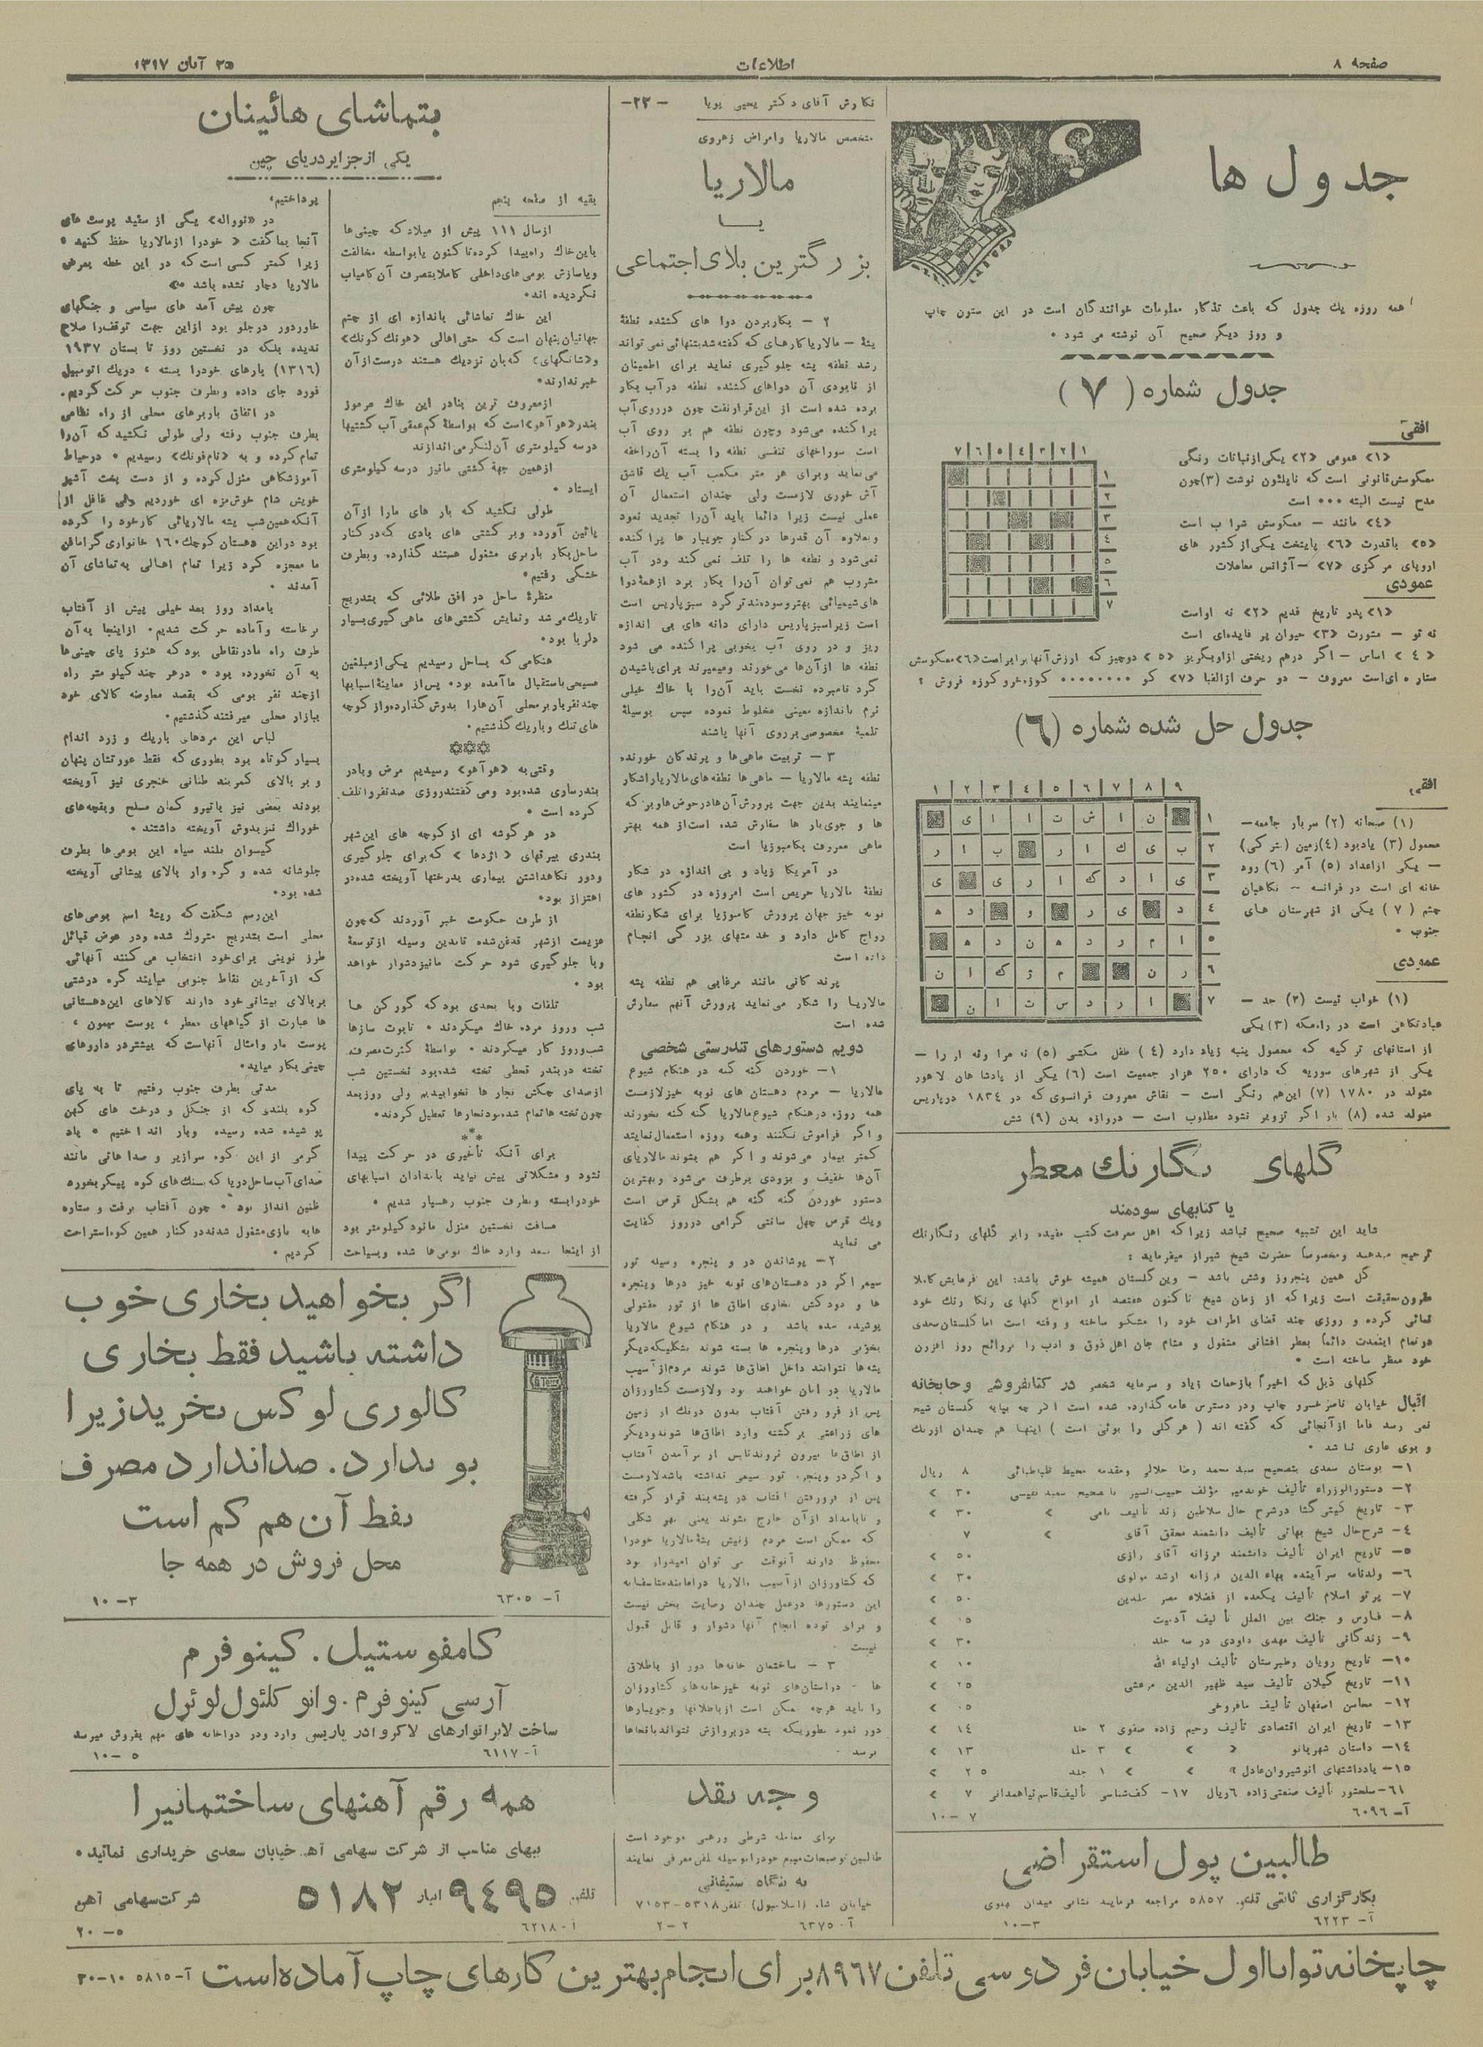 صفحه ۸
اطلاعات
۲۵ آبان ۱۳۱۷
جدول ها
همه روزه یك جدول که باعث تذکار معلومات خوانندگان است در این ستون چاپ
و روز دیگر صحیح آن نوشته می شود ۰
جدول شماره ( ۷ )
افقی
<۱> عمومی <۲> یکی از نباتات رنگی
معکوسش قانونی است که ناپلئون نوشت (۳) چون
مدح نیست البته ۰۰۰ است
<۴> مانند – معکوسش شراب است
<۵> باقدرت <۶> پایتخت یکی از کشور های
اروپای مرکزی <۷> – آژانس معاملات
عمودی
<۱> پدر تاریخ قدیم <۲> نه اوست
نه تو – مشورت <۳> حیوان پر فایده‌ای است
< ۴ > اساس – اگر درهم ریختی از او بگریز < ۵ > دوچیز که ارزش آنها برابر است <۶> معکوسش
ستاره ای است معروف – دو حرف از الفبا <۷> کو ۰۰۰۰۰۰۰۰ کوزه خر و کوزه فروش ؟
۱ ۲ ۳ ۴ ۵ ۶ ۷
جدول حل شده شماره (۶)
افقی
(۱) صبحانه (۲) سربار جامعه –
معمول (۳) یادبود (۴) زمین (ترکی)
– یکی از اعداد (۵) آمر (۶) رود
خانه ای است در فرانسه – نگاهبان
چشم ( ۷ ) یکی از شهرستان های
جنوب ۰
عمودی
(۱) خواب نیست (۲) حد –
عبادتگاهی است در راه مکه (۳) یکی
از استانهای ترکیه که محصول پنبه زیاد دارد (۴) طفل مکشی (۵) نه مرا و نه او را –
یکی از شهرهای سوریه که دارای ۲۵۰ هزار جمعیت است (۶) یکی از پادشاهان لاهور
متولد در ۱۷۸۰ (۷) این هم رنگی است – نقاش معروف فرانسوی که در ۱۸۳۴ در پاریس
متولد شده (۸) بار اگر تزویر نشود مطلوب است – دروازه بدن (۹) شش
گلهای رنگارنك معطر
یا کتابهای سودمند
شاید این تشبیه صحیح نباشد زیرا که اهل معرفت کتب مفیده را بر گلهای رنگارنك
ترجیح میدهند ومخصوصاً حضرت شیخ شیراز میفرماید :
گل همین پنجروز وشش باشد – وین گلستان همیشه خوش باشد: این فرمایش کاملا
خود معطر ساخته است ۰
۱– بوستان سعدی بتصحیح سید محمد رضا جلالی ومقدمه محیط طباطبائی ۸ ریال
۲– دستورالوزراء تألیف خوندمیر مؤلف حبیب السیر با تصحیح سعید نفیسی ۳۰ >
۳– تاریخ گیتی گشا در شرح حال سلاطین زند تألیف نامی > ۳۰ >
۴– شرح حال شیخ بهائی تألیف دانشمند محقق آقای > ۷
۵– تاریخ ایران تألیف دانشمند فرزانه آقای رازی ۵۰ >
۶– ولدنامه سرآینده بهاء الدین فرزانه ارشد مولوی ۳۰ >
۷– پرتو اسلام تألیف یکعده از فضلاء مصر جلدین ۵۰ >
۸– فارس و جنك بین الملل تألیف آدمیت
۹– زندگانی تألیف مهدی داودی در سه جلد ۳۰ >
۱۰– تاریخ رویان وطبرستان تألیف اولیاء الله ۱۰ >
۱۱– تاریخ گیلان تألیف سید ظهیر الدین مرعشی
۱۲– محاسن اصفهان تألیف مافروخی
۱۳– تاریخ ایران اقتصادی تألیف رحیم زاده صفوی ۲ جلد ۱۴ >
۱۴– داستان شهربانو > > ۳ جلد ۱۳ >
۱۵– یادداشتهای انوشیروان عادل > > ۱ جلد
۱۶– سلحشور تألیف صنعتی زاده ۶ ریال ۱۷– کف شناسی تألیف قاسم نیاهمدانی ۷ >
آ– ۶۰۹۶ ۷ –۱۰
طالبین پول استقراضی
بکارگزاری ثانقی تلفن ۵۸۵۷ مراجعه فرمایند نشانی میدان پهلوی
آ– ۶۲۲۳ ۳–۱۰
نگارش آقای دکتر یحیی پویا –۲۲–
متخصص مالاریا وامراض زهروی
مالاریا
یا
بزرگترین بلای اجتماعی
۲ – بکاربردن دوا های کشنده نطفهٔ
پشهٔ – مالاریا کارهای که گفته شد بتنهائی نمی تواند
رشد نطفه پشه جلوگیری نماید برای اطمینان
از نابودی آن دواهای کشنده نطفه در آب بکار
برده شده است از این قرار نفت چون در روی آب
پراکنده می‌شود وچون نطفه هم بر روی آب
است سوراخهای تنفسی نطفه را بسته آن را خفه
می نماید وبرای هر متر مکعب آب یك قاشق
آش خوری لازمست ولی چندان استعمال آن
عملی نیست زیرا دائما باید آن را تجدید نمود
وبعلاوه آن قدرها در کنار جویبار ها پراکنده
نمی شود و نطفه ها را تلف نمی کند ودر آب
مشروب هم نمی توان آن را بکار برد از همه دوا
های شیمیائی بهتر وسودمندتر گرد سبز پاریس است
است زیرا سبز پاریس دارای دانه های بی اندازه
ریز و در روی آب بخوبی پراکنده می شود
نطفه ها از آن ها می خورند ومیمیرند برای پاشیدن
گرد نامبرده نخست باید آن را با خاك خیلی
نرم باندازه معینی مخلوط نموده سپس بوسیلهٔ
تلمبهٔ مخصوصی بر روی آنها پاشند
۳ – تربیت ماهی ها و پرندگان خورنده
نطفه پشه مالاریا – ماهی ها نطفه های مالاریا را شکار
مینمایند بدین جهت پرورش آن ها در حوض ها وبرکه
ها و جوی بار ها سفارش شده است از همه بهتر
ماهی معروف بگامبوزیا است
در آمریکا زیاد و بی اندازه در شکار
نطفهٔ مالاریا حریص است امروزه در کشور های
نوبه خیز جهان پرورش کامبوزیا برای شکار نطفه
رواج کامل دارد و خدمتهای بزرگی انجام
داده است
پرندگانی مانند مرغابی هم نطفه پشه
مالاریا را شکار می نماید پرورش آنهم سفارش
شده است
دویم دستورهای تندرستی شخصی
۱– خوردن گنه گنه در هنگام شیوع
مالاریا – مردم دهستان های نوبه خیز لازمست
همه روزه درهنگام شیوع مالاریا گنه گنه بخورند
و اگر فراموش نکنند وهمه روزه استعمال نمایند
کمتر بیمار می شوند و اگر هم بشوند مالاریای
آن ها خفیف و بزودی برطرف می شود وبهترین
دستور خوردن گنه گنه هم بشکل قرص است
ویك قرص چهل سانتی گرامی درروز کفایت
می نماید
۲– پوشاندن در و پنجره وسیله تور
سیمی اگر در دهستان های نوبه خیز درها وپنجره
ها و دودکش بخاری اطاق ها از تور مفتولی
پوشیده شده باشد و در هنگام شیوع مالاریا
بخوبی درها وپنجره ها بسته شوند بشکلیکه دیگر
پشه ها نتوانند داخل اطاق ها شوند مردم از آسیب
مالاریا در امان خواهند بود ولازمست کشاورزان
پس از فرو رفتن آفتاب بدون درنك از زمین
های زراعتی برگشته وارد اطاق ها شوند ودیگر
از اطاق ها بیرون نروند تا پس از برآمدن آفتاب
که کشاورزان از آسیب مالاریا در امانند متاسفانه
این دستورها درعمل چندان رضایت بخش نیست
و برای توده انجام آنها دشوار و قابل قبول
نیست ۰
۳ – ساختمان خانه‌ها دور از باطلاق
ها – دراستان های نوبه خیز خانه های کشاورزان
را باید هرچه ممکن است از باطلاقها وجویبارها
دور نمود بطوریکه پشه در پروازش نتواند بآنجا
برسد ۰
وجه نقد
برای معامله شرطی ورهنی موجود است
به بنگاه ستیفانی
خیابان شاه (اسلامبول) تلفن ۵۳۱۸–۷۱۵۳
آ– ۶۳۷۵ ۲–۲
بتماشای هائینان
یکی از جزایر دریای چین
بقیه از صفحه پنجم
از سال ۱۱۱ پیش از میلاد که چینی ها
باین خاك راه پیدا کرده تا کنون یا بواسطه مخالفت
ویا سازش بومی های داخلی کاملا بتصرف آن کامیاب
نگردیده اند۰
این خاك تماشائی باندازه ای از چشم
جهانیان پنهان است که حتی اهالی «هونك کونك»
و «شانگهای» که بآن نزدیك هستند درست از آن
خبر ندارند۰
از معروف ترین بنادر این خاك مرموز
بندر «هوآهو» است که بواسطهٔ کم عمقی آب کشتیها
در سه کیلومتری آن لنگر می اندازند
از همین جهة کشتی ما نیز در سه کیلومتری
ایستاد ۰
طولی نکشید که بار های ما را از آن
پائین آورده وبر کشتی های بادی که در کنار
ساحل بکار باربری مشغول هستند گذارده وبطرف
خشکی رفتیم۰
منظرهٔ ساحل در افق طلائی که بتدریج
تاریك می شد ونمایش کشتی های ماهی گیری بسیار
دلربا بود۰
هنگامی که بساحل رسیدیم یکی از مبلغین
مسیحی باستقبال ما آمده بود۰ پس از معاینهٔ اسبابها
چند نفر باربر محلی آن ها را بدوش گذارده واز کوچه
های تنك و باریك گذشتیم۰
***
وقتی به «هوآهو» رسیدیم مرض وبا در
بندر ساری شده بود ومی گفتند روزی صد نفر را تلف
کرده است ۰
در هر گوشه ای از کوچه های این شهر
بندری بیرقهای « اژدها » که برای جلوگیری
ودور نگاهداشتن بیماری بدرختها آویخته شده در
اهتزاز بود۰
از طرف حکومت خبر آوردند که چون
عزیمت از شهر قدغن شده تا بدین وسیله از توسعهٔ
وبا جلوگیری شود حرکت ما نیز دشوار خواهد
بود ۰
تلفات وبا بحدی بود که گورکن ها
شب وروز مرده خاك میکردند ۰ تابوت سازها
شب وروز کار میکردند ۰ بواسطهٔ کثرت مصرف
تخته در بندر قحطی تخته شده بود نخستین شب
از صدای چکش نجار ها نخوابیدیم ولی روز بعد
چون تخته ها تمام شده بود نجارها تعطیل کردند۰
***
برای آنکه تأخیری در حرکت پیدا
نشود و مشکلاتی پیش نیاید بامدادان اسبابهای
خود را بسته وبطرف جنوب رهسپار شدیم ۰
مسافت نخستین منزل ما نود کیلومتر بود
از اینجا ببعد وارد خاك بومی ها شده وبسیاحت
پرداختیم۰
در «نوراله» یکی از سفید پوست های
آنجا بما گفت « خود را از مالاریا حفظ کنید ۰
زیرا کمتر کسی است که در این خطه بمرض
مالاریا دچار نشده باشد »
چون پیش آمد های سیاسی و جنگهای
خاوردور درجلو بود از این جهت توقف را صلاح
ندیده بلکه در نخستین روز تابستان ۱۹۳۷
(۱۳۱۶) بارهای خود را بسته ، در یك اتومبیل
فورد جای داده وبطرف جنوب حرکت کردیم۰
در اتفاق باربرهای محلی از راه نظامی
بطرف جنوب رفته ولی طولی نکشید که آن را
تمام کرده و به «نام فونك» رسیدیم ۰ در حیاط
آموزشگاهی منزل کرده و از دست پخت آشپز
خویش شام خوش مزه ای خوردیم ولی غافل از
آنکه همین شب پشه مالاریائی کار خود را کرده
بود در این دهستان کوچك ۱۶۰ خانواری گرامافن
ما معجزه کرد زیرا تمام اهالی به تماشای آن
آمدند ۰
بامداد روز بعد خیلی پیش از آفتاب
برخاسته وآماده حرکت شدیم۰ از اینجا به آن
طرف راه ما در نقاطی بود که هنوز پای چینی ها
به آن نخورده بود ۰ در هر چند کیلو متر راه
از چند نفر بومی که بقصد معاوضه کالای خود
ببازار محلی میرفتند گذشتیم۰
لباس این مردهای باریك و زرد اندام
بسیار کوتاه بود بطوری که فقط عورتشان پنهان
و بر بالای کمربند طنابی خنجری نیز آویخته
بودند بعضی نیز باتیرو کمان مسلح وبقچه های
خوراك نیز بدوش آویخته داشتند ۰
گیسوان بلند سیاه این بومی ها بطرف
جلو شانه شده و گره وار بالای پیشانی آویخته
شده بود۰
این رسم شگفت که ریشهٔ اسم بومی های
محلی است بتدریج متروك شده ودر عوض قبائل
طرز نوینی برای خود انتخاب می کنند آنهائی
که از آخرین نقاط جنوبی میایند گره درشتی
بر بالای پیشانی خود دارند کالاهای این دهستانی
ها عبارت از گیاههای معطر ، پوست میمون ،
پوست مار وامثال آنهاست که بیشتر در داروهای
چینی بکار میاید۰
مدتی بطرف جنوب رفتیم تا به پای
کوه بلندی که از جنگل و درخت های کهن
پوشیده شده رسیده وبار انداختیم ۰ باد
گرمی از این کوه سرازیر و صداهائی مانند
صدای آب ساحل دریا که بسنك های کوه پیکر بخورد
طنین انداز بود ۰ چون آفتاب برفت و ستاره
ها به بازی مشغول شدند در کنار همین کوه استراحت
کردیم ۰
اگر بخواهید بخاری خوب
داشته باشید فقط بخاری
کالوری لوکس بخرید زیرا
بو ندارد. صدا ندارد مصرف
نفط آن هم کم است
محل فروش در همه جا
آ– ۶۳۰۵ ۳–۱۰
کامفوستیل. کینوفرم
آرسی کینوفرم. وانو کلئول لوئرل
ساخت لابراتوارهای لاکروا در پاریس وارد ودر دواخانه های مهم بفروش میرسد
آ– ۶۱۱۷ ۵–۱۰
همه رقم آهنهای ساختمانیرا
ببهای مناسب از شرکت سهامی آهن خیابان سعدی خریداری نمائید۰
تلفن ۹۴۹۵ انبار ۵۱۸۲ شرکت سهامی آهن
آ– ۶۲۱۸ ۵–۲۰
چاپخانه توانا اول خیابان فردوسی تلفن ۸۹۶۷ برای انجام بهترین کارهای چاپ آماده است آ– ۵۸۱۵ ۱۰–۳۰